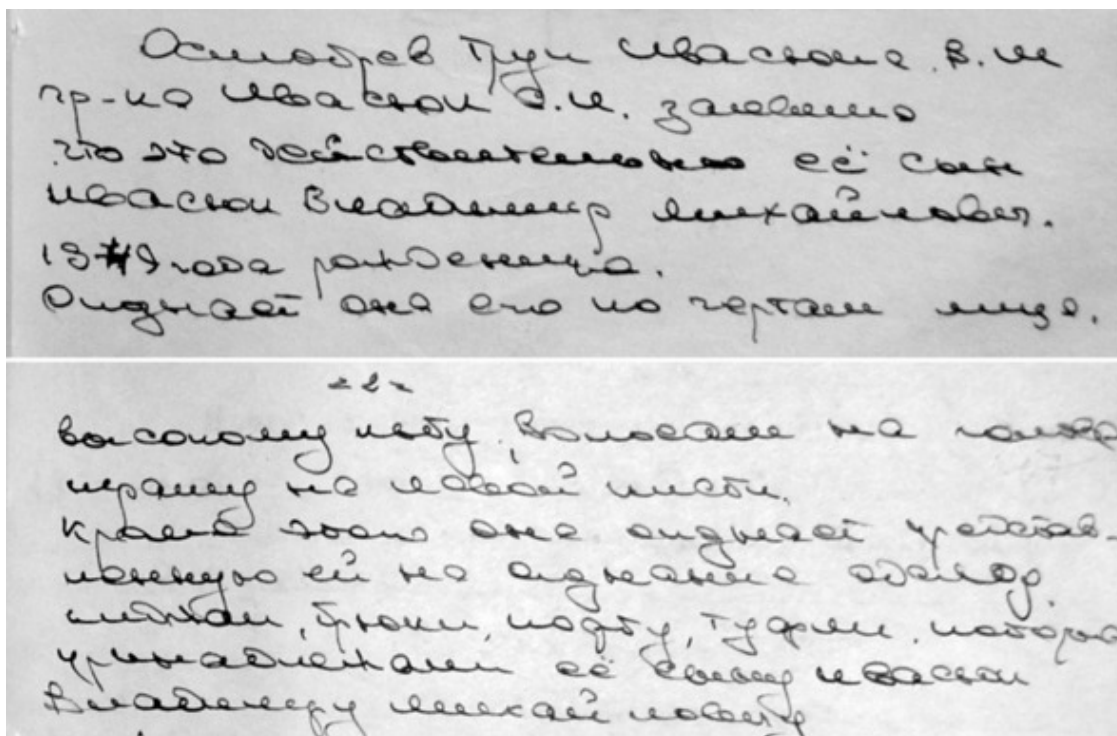 Осмотрев труп Ивасюка В.М
гр-ка Ивасюк С.И. заявила
что это действительно её сын
Ивасюк Владимир Михайлович.
1949 года рождения.
Опознает она его по чертам лица.
-2-
высокому лбу, волосам на голове
шраму на левой кисти.
Кроме этого она опознает представ-
ленную ей на опознание одежду.
пиджак, брюки, кофту, туфли, которые
принадлежали её сыну Ивасюк
Владимиру Михайловичу